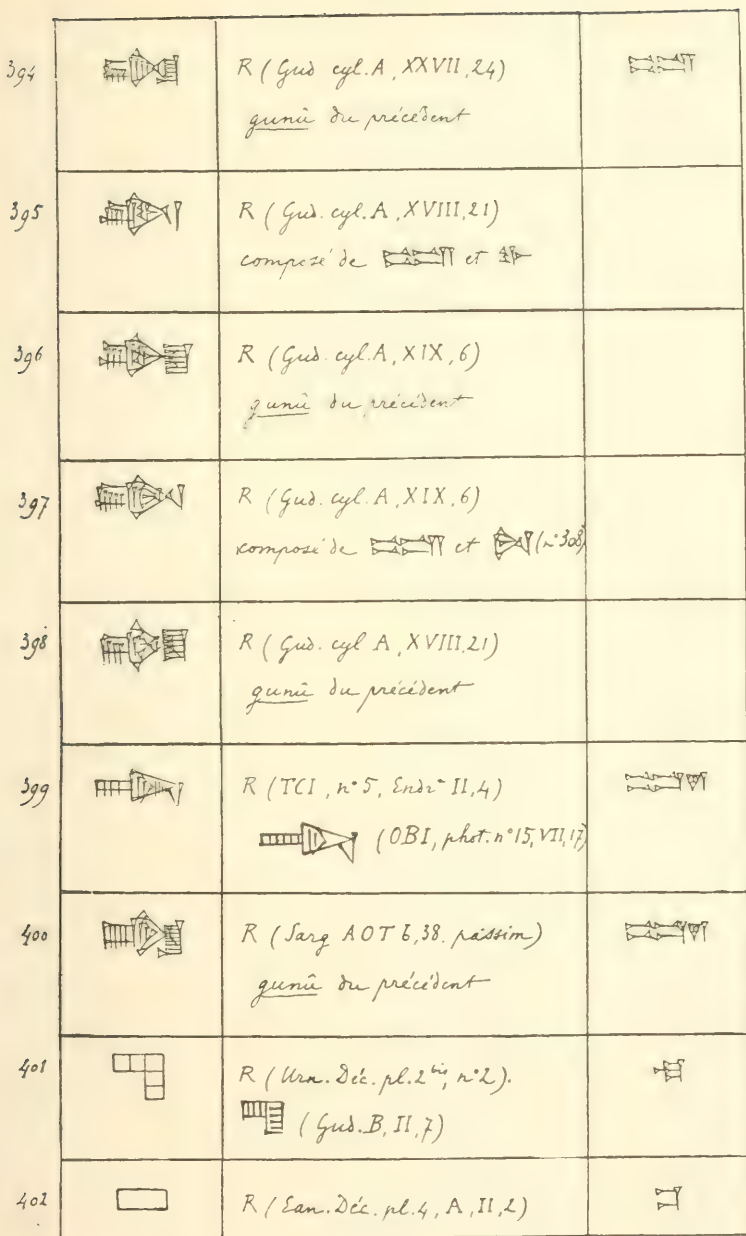 394 R (Gud cyl. A, XXVII, 24)
gunû du précédent
395 R (Gud. cyl. A, XVIII, 21)
composé de et
396 R (Gud. cyl. A, XIX, 6)
gunû du précédent
397 R (Gud. cyl. A, XIX, 6)
composé de et (n° 308)
398 R (Gud. cyl A, XVIII, 21)
gunû du précédent
399 R (TCI, n° 5, II, 4)
(OBI, phot. n° 15, VII, 17)
400 R (Sarg AOT b, 38. passim)
gunû du précédent
401 R (Urn. Déc. pl. 2 bis, n° 2).
(Gud. B, II, 7)
402 R (Ean. Déc. pl. 4, A, II, 2)